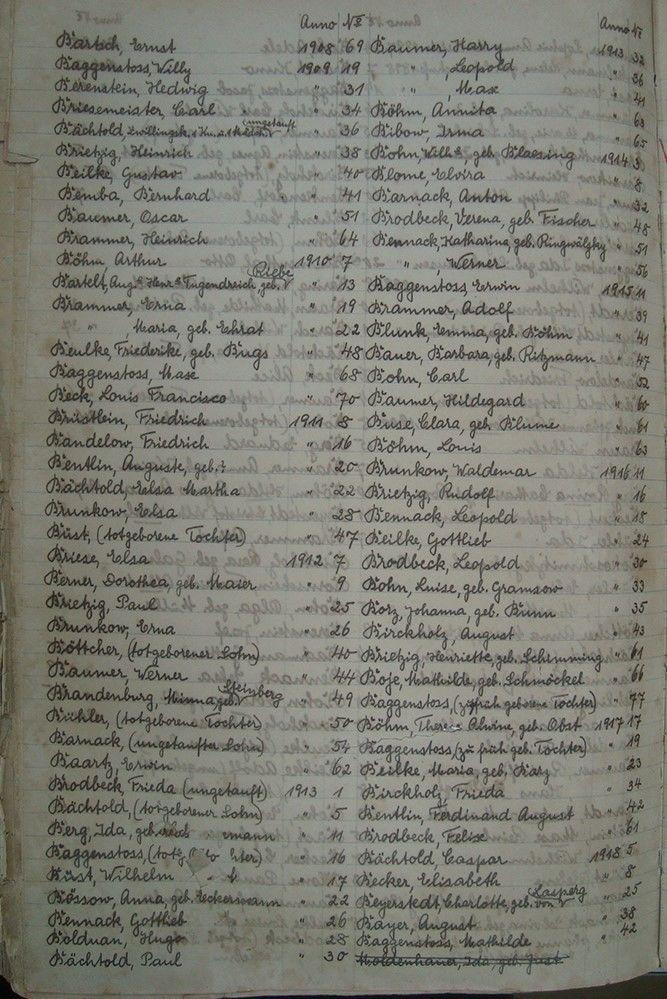 Anno №
Bartsch, Ernst 1908 69
Baggenstoss, Willy 1909 19
Berenstein, Hedwig " 31
Briesemeister, Carl " 34
Bächtold, ungetauft " 36
Brietzig, Heinrich " 38
Beilke, Gustav " 40
Bemba, Bernhard " 41
Baumer, Oscar " 51
Brammer, Heinrich " 64
Böhm, Arthur 1910 7
Bartelt, Aug.e Henr.e Tugendreich, geb. Riebe " 13
Brammer, Erna " 19
" Maria, geb. Ehrat " 22
Beulke, Friederike, geb. Bugs " 48
Baggenstoss, Max " 68
Beck, Louis Francisco " 70
Brüstlein, Friedrich 1911 8
Bandelow, Friedrich " 16
Bentlin, Auguste, geb. ? " 20
Bächtold, Elsa Martha " 22
Brunkow, Elsa " 28
Büst, (totgeborene Tochter) " 47
Briese, Elsa 1912 7
Berner, Dorothea, geb. Maier " 9
Brietzig, Paul " 25
Brunkow, Erna " 26
Böttcher, (totgeborener Sohn) " 40
Baumer, Werner " 44
Brandenburg, Minna, geb. Steinberg " 49
Bühler, (totgeborene Tochter) " 50
Barnack, (ungetaufter Sohn) " 54
Baartz, Erwin " 62
Brodbeck, Frieda (ungetauft) 1913 1
Bächtold, (totgeborener Sohn) " 5
Berg, Ida, geb. " 11
Baggenstoss, " 16
Büst, Wilhelm " 17
Bössow, Anna, geb. Eckermann " 22
Bennack, Gottlieb " 26
Bolduan, Hugo " 28
Bächtold, Paul " 30
Anno №
Baumer, Harry 1913 32
" Leopold " 36
" Max " 41
Böhm, Annita " 63
Bibow, Irma " 65
Bohn, Wilh.e, geb. Blaesing 1914 3
Blome, Elvira " 8
Barnack, Anton " 32
Brodbeck, Verena, geb. Fischer " 48
Bennack, Katharina, geb. " 51
" , Werner " 56
Baggenstoss, Erwin 1915 11
Brammer, Adolf " 39
Blunk, Emma, geb. Böhm " 41
Bauer, Barbara, geb. Ritzmann " 47
Bohn, Carl " 52
Baumer, Hildegard " 60
Buse, Clara, geb. Blume " 61
Böhm, Louis " 63
Brunkow, Waldemar 1916 11
Brietzig, Rudolf " 16
Bennack, Leopold " 18
Beilke, Gottlieb " 24
Brodbeck, Leopold " 30
Bohn, Luise, geb. Gramsow " 33
Borz, Johanna, geb. Bunn " 35
Birckholz, August " 43
Brietzig, Henriette, geb. Schimming " 61
Boje, Mathilde, geb. Schmöckel " 66
Baggenstoss, (zu früh geborene Tochter) " 77
Böhm, Therese Alwine, geb. Obst 1917 17
Baggenstoss (zu früh geb. Tochter) " 19
Beilke, Maria, geb. Barz " 23
Birckholz, Frieda " 34
Bentlin, Ferdinand August " 42
Brodbeck, Felix " 61
Bächtold, Caspar 1918 5
Becker, Elisabeth " 8
Beyerstedt, Charlotte, geb. von Kasperg " 25
Bayer, August " 38
Baggenstoss, Mathilde " 42
Moldenhauer, Ida, geb. Just